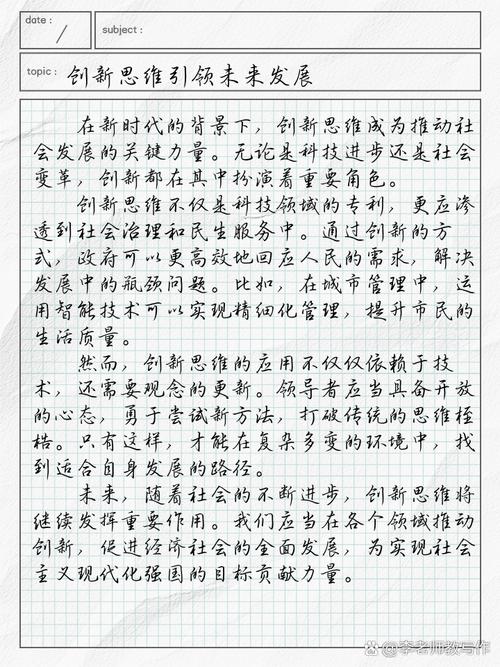 date:
subject:
topic: 创新思维引领未来发展
在新时代的背景下，创新思维成为推动社
会发展的关键力量。无论是科技进步还是社会
变革，创新都在其中扮演着重要角色。
创新思维不仅是科技领域的专利，更应渗
透到社会治理和民生服务中。通过创新的方
式，政府可以更高效地回应人民的需求，解决
发展中的瓶颈问题。比如，在城市管理中，运
用智能技术可以实现精细化管理，提升市民的
生活质量。
然而，创新思维的应用不仅仅依赖于技
术，还需要观念的更新。领导者应当具备开放
的心态，勇于尝试新方法，打破传统的思维桎
梏。只有这样，才能在复杂多变的环境中，找
到适合自身发展的路径。
未来，随着社会的不断进步，创新思维将
继续发挥重要作用。我们应当在各个领域推动
创新，促进经济社会的全面发展，为实现社会
主义现代化强国的目标贡献力量。
@李老师教写作